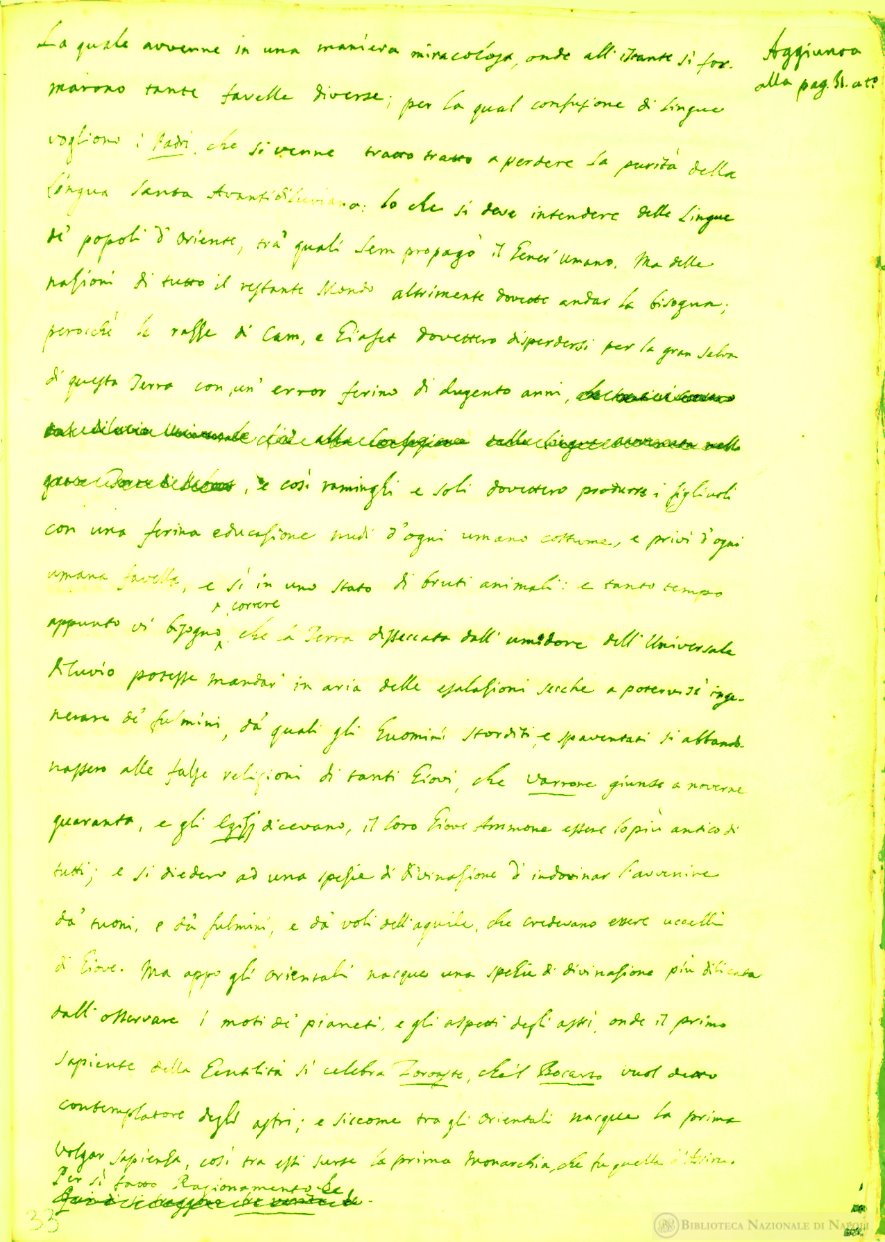 La quale avvenne in una maniera miracolosa, onde all'istante si for-
marono tante favelle diverse; per la qual confusione di Lingue
vogliono i Padri, che si venne tratto tratto a perdere la purità della
Lingua Santa Avantidiluviana: lo che si deve intendere delle Lingue
de' popoli d'Oriente, tra' quali Sem propagò il Gener'umano. Ma delle
nazioni di tutto il restante Mondo altrimente dovette andar la bisogna;
perocchè le razze di Cam, e Giafet dovettero disperdersi per la gran Selva
di questa Terra con un' error ferino di dugento anni,
, e così raminghi e soli dovettero produrre i figliuoli
con una ferina educazione nudi d'ogni umano costume, e privi d'ogni
umana favella, e sì in uno stato di bruti animali: e tanto tempo
appunto vi bisognò correre che la Terra disseccata dall'umidore dell'Universale
Diluvio potesse mandar' in aria delle esalazioni secche a potervisi inge-
nerare de' fulmini, da' quali gli huomini storditi, e spaventati si abbando-
nassero alle false religioni di tanti Giovi, che Varrone giunse a noverne
quaranta, e gli Egizj dicevano, il loro Giove Ammone essere lo più antico di
tutti; e si diedero ad una spezie di Divinazione d'indovinar l'avvenire
da' tuoni, e da' fulmini, e da' voli dell'aquile, che credevano essere uccelli
di Giove. Ma appo gli Orientali nacque una spezie di divinazione più dilicata
dall'osservare i moti de' pianeti, e gli aspetti degli astri, onde il primo
sapiente della Gentilità si celebra Zoroaste, che'l Bocarto vuol detto
contemplatore degli astri; e siccome tra gli Orientali nacque la prima
Volgar Sapienza, così tra essi surse la prima Monarchia, che fu quella d'Assiria.
Per sì fatto Ragionamento
Aggiunta
alla pag. 51. at.º
33
BIBLIOTECA NAZIONALE DI NAPOLI